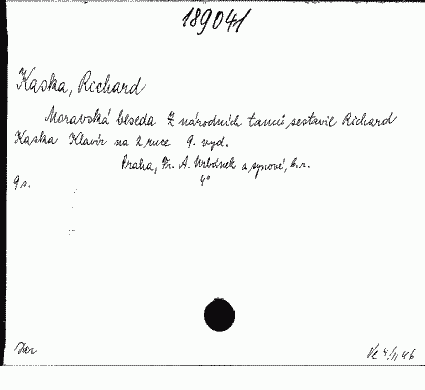 189041
Kaska, Richard
Moravská beseda Z národních tanců sestavil Richard
Kaska Klavír na 2 ruce 9. vyd.
Praha, Fr. A. Urbánek a synové, b.r.
9 s. 4°
Ve 4/II 46